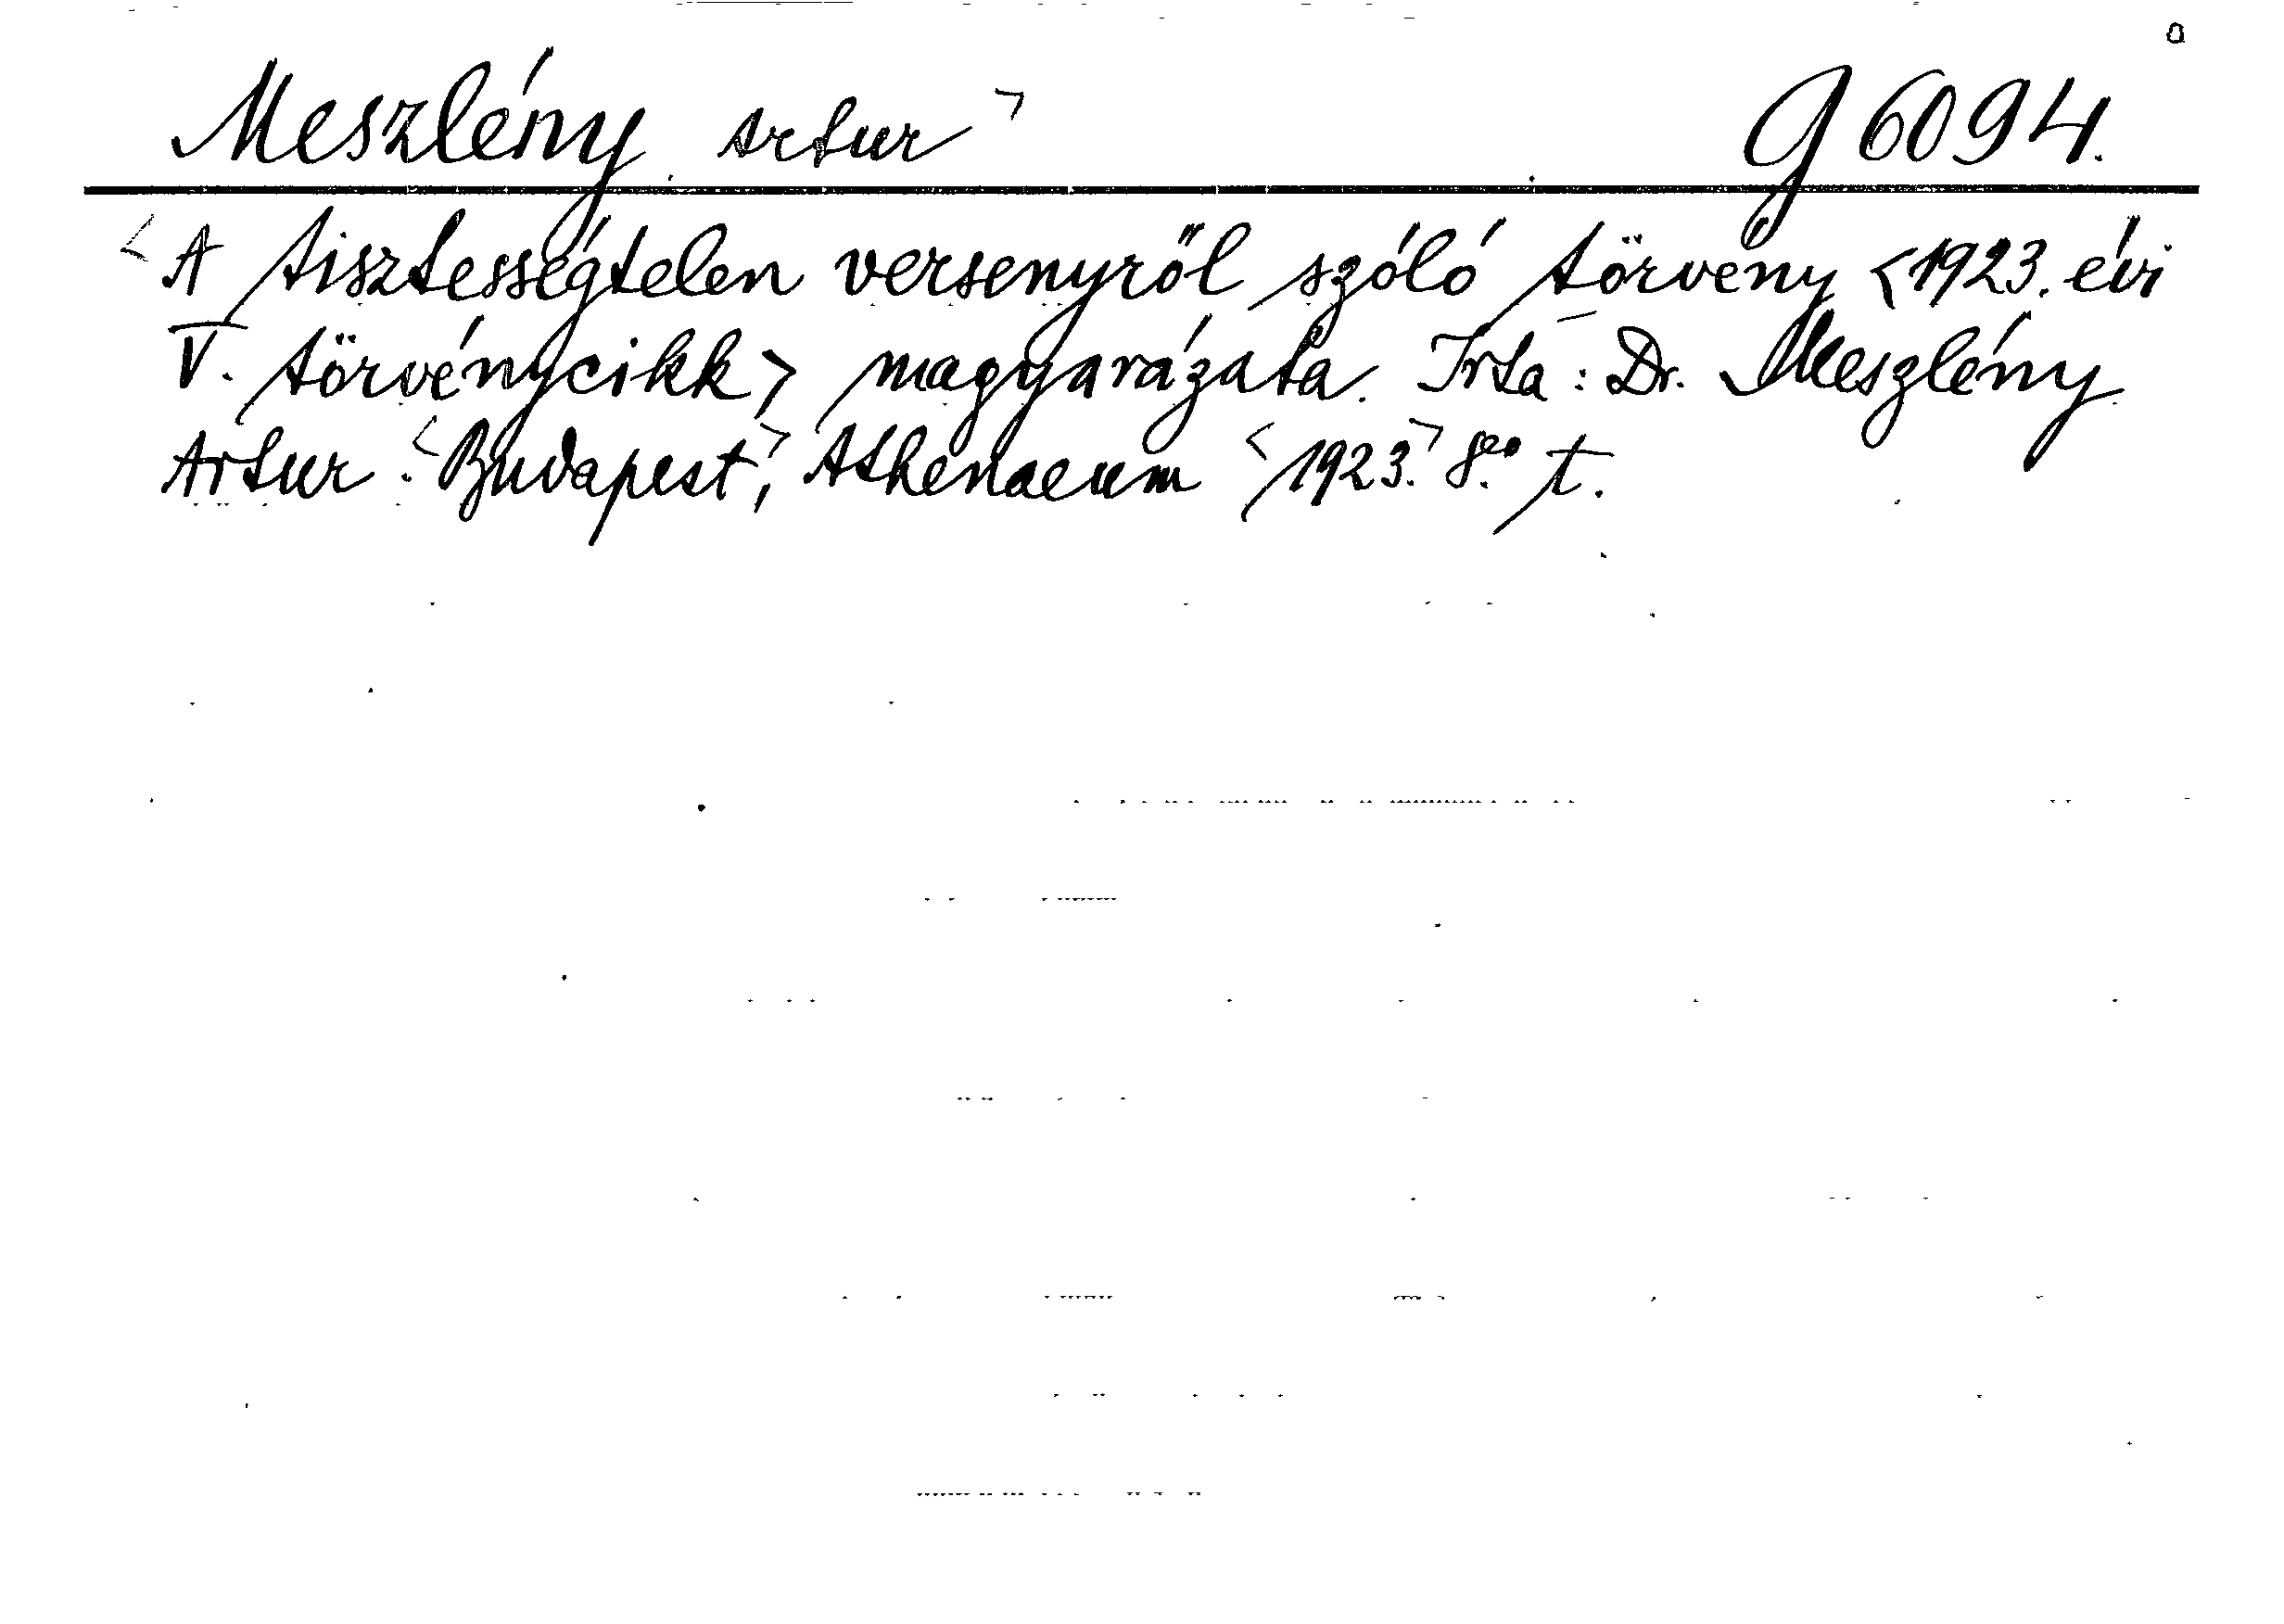 Meszlény Artur> G 6094.
<A tisztességtelen versenyről szóló törvény <1923. évi
V. törvénycikk> magyarázata. Irta: Dr. Meszlény
Artur. <Budapest,> Athenaeum <1923.> 8.º t.